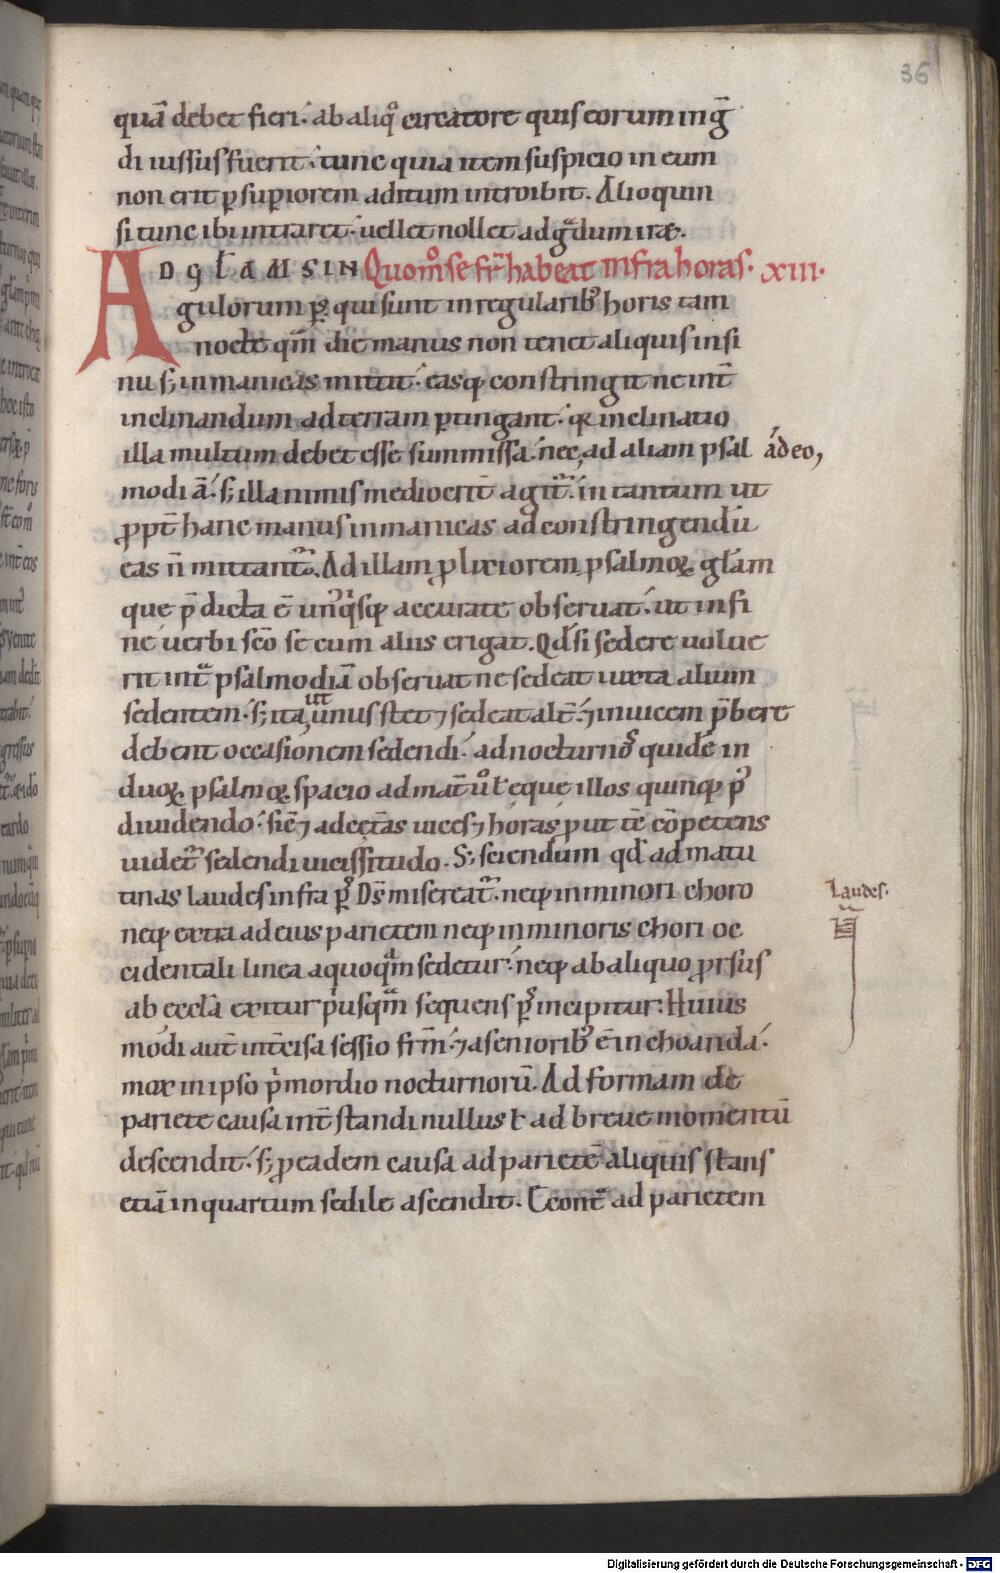 36
quā debet fieri. ab aliqͦ circatore quis eorum in ḡ
di iussus fuerit. tunc quia item suspicio in eum
non erit ꝑ supiorem aditum introibit. Alioquin
si tunc ibi intraret. uellet nollet ad gͣdum iræ.
AD GL̄AM SIN Quom̊ se fr̄ habeat infra horas. XIII.
gulorum pͦꝫ qui sunt in regularibꝰ horis tam
nocte qͣm die manus non tenet aliquis in si
nu sꝫ in manicas mittit. easqꝫ constringit ne int̄
inclinandum ad terram ꝑtingant. qꝛ inclinatio
illa multum debet esse summissa. nec ad aliam psal adeo,
modi ā. sꝫ illa nimis mediocrit̄ agit᷑. in tantum ut
ꝓpt̄ hanc manus in manicas ad constringendū
eas n̄ mittant᷑. Ad illam ꝓlixiorem psalmoꝝ gl̄am
que p̄dicta ē unꝰqͥsqꝫ accurate obseruat. ut in fi
ne uerbi sc̄o se cum aliis erigat. Qd̄ si sedere uolue
rit intͣ psalmodiā obseruat ne sedeat iuxta alium
sedentem. sꝫ ita ut unus stet ⁊ sedeat alt̄. ⁊ inuicem p̄bere
debent occasionem sedendi. ad nocturnoꝰ quidē in
duoꝝ psalmoꝝ spacio ad mat̄ uͦ l̵ eque illos quinqꝫ pͥ
diuidendo. sic̄ ⁊ ad cęt̄as uices ⁊ horas ꝓut t̄c cōpetens
uidet᷑ sedendi uicissitudo. Sꝫ sciendum qd̄ ad matu
tinas laudes infra pͦ Ds̄ misereat᷑. neqꝫ in minori choro
Laudes.
neqꝫ extra ad eius parietem neqꝫ in minoris chori oc
cidentali linea a quoqͣm sedetur. neqꝫ ab aliquo ꝓrsus
ab eccl̄a exitur pͥusqͣm sequens pͦ incipitur. Huius
modi aut̄ int̄cisa sessio fr̄m. ⁊ a senioribꝰ ē inchoanda.
mox in ipso pͥmordio nocturnorū. Ad formam de
pariete causa int̄ standi nullus l̵ ad breue momentū
descendit. sꝫ ꝓ eadem causa ad parietē aliquis stans
etiā in quartum sedile ascendit. Econtͣ ad parietem
Digitalisierung gefördert durch die Deutsche Forschungsgemeinschaft - DFG